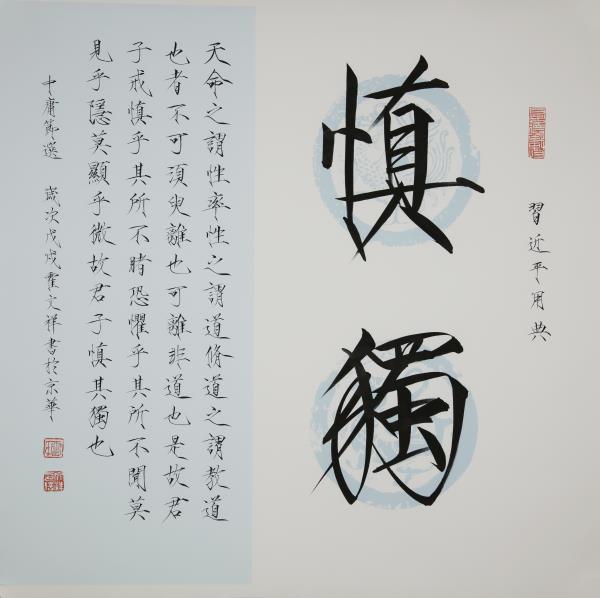 習近平用典
慎獨
天命之謂性率性之謂道脩道之謂教道
也者不可須臾離也可離非道也是故君
子戒慎乎其所不睹恐懼乎其所不聞莫
見乎隱莫顯乎微故君子慎其獨也
中庸節選 歲次戊戌霍文祥書於京華